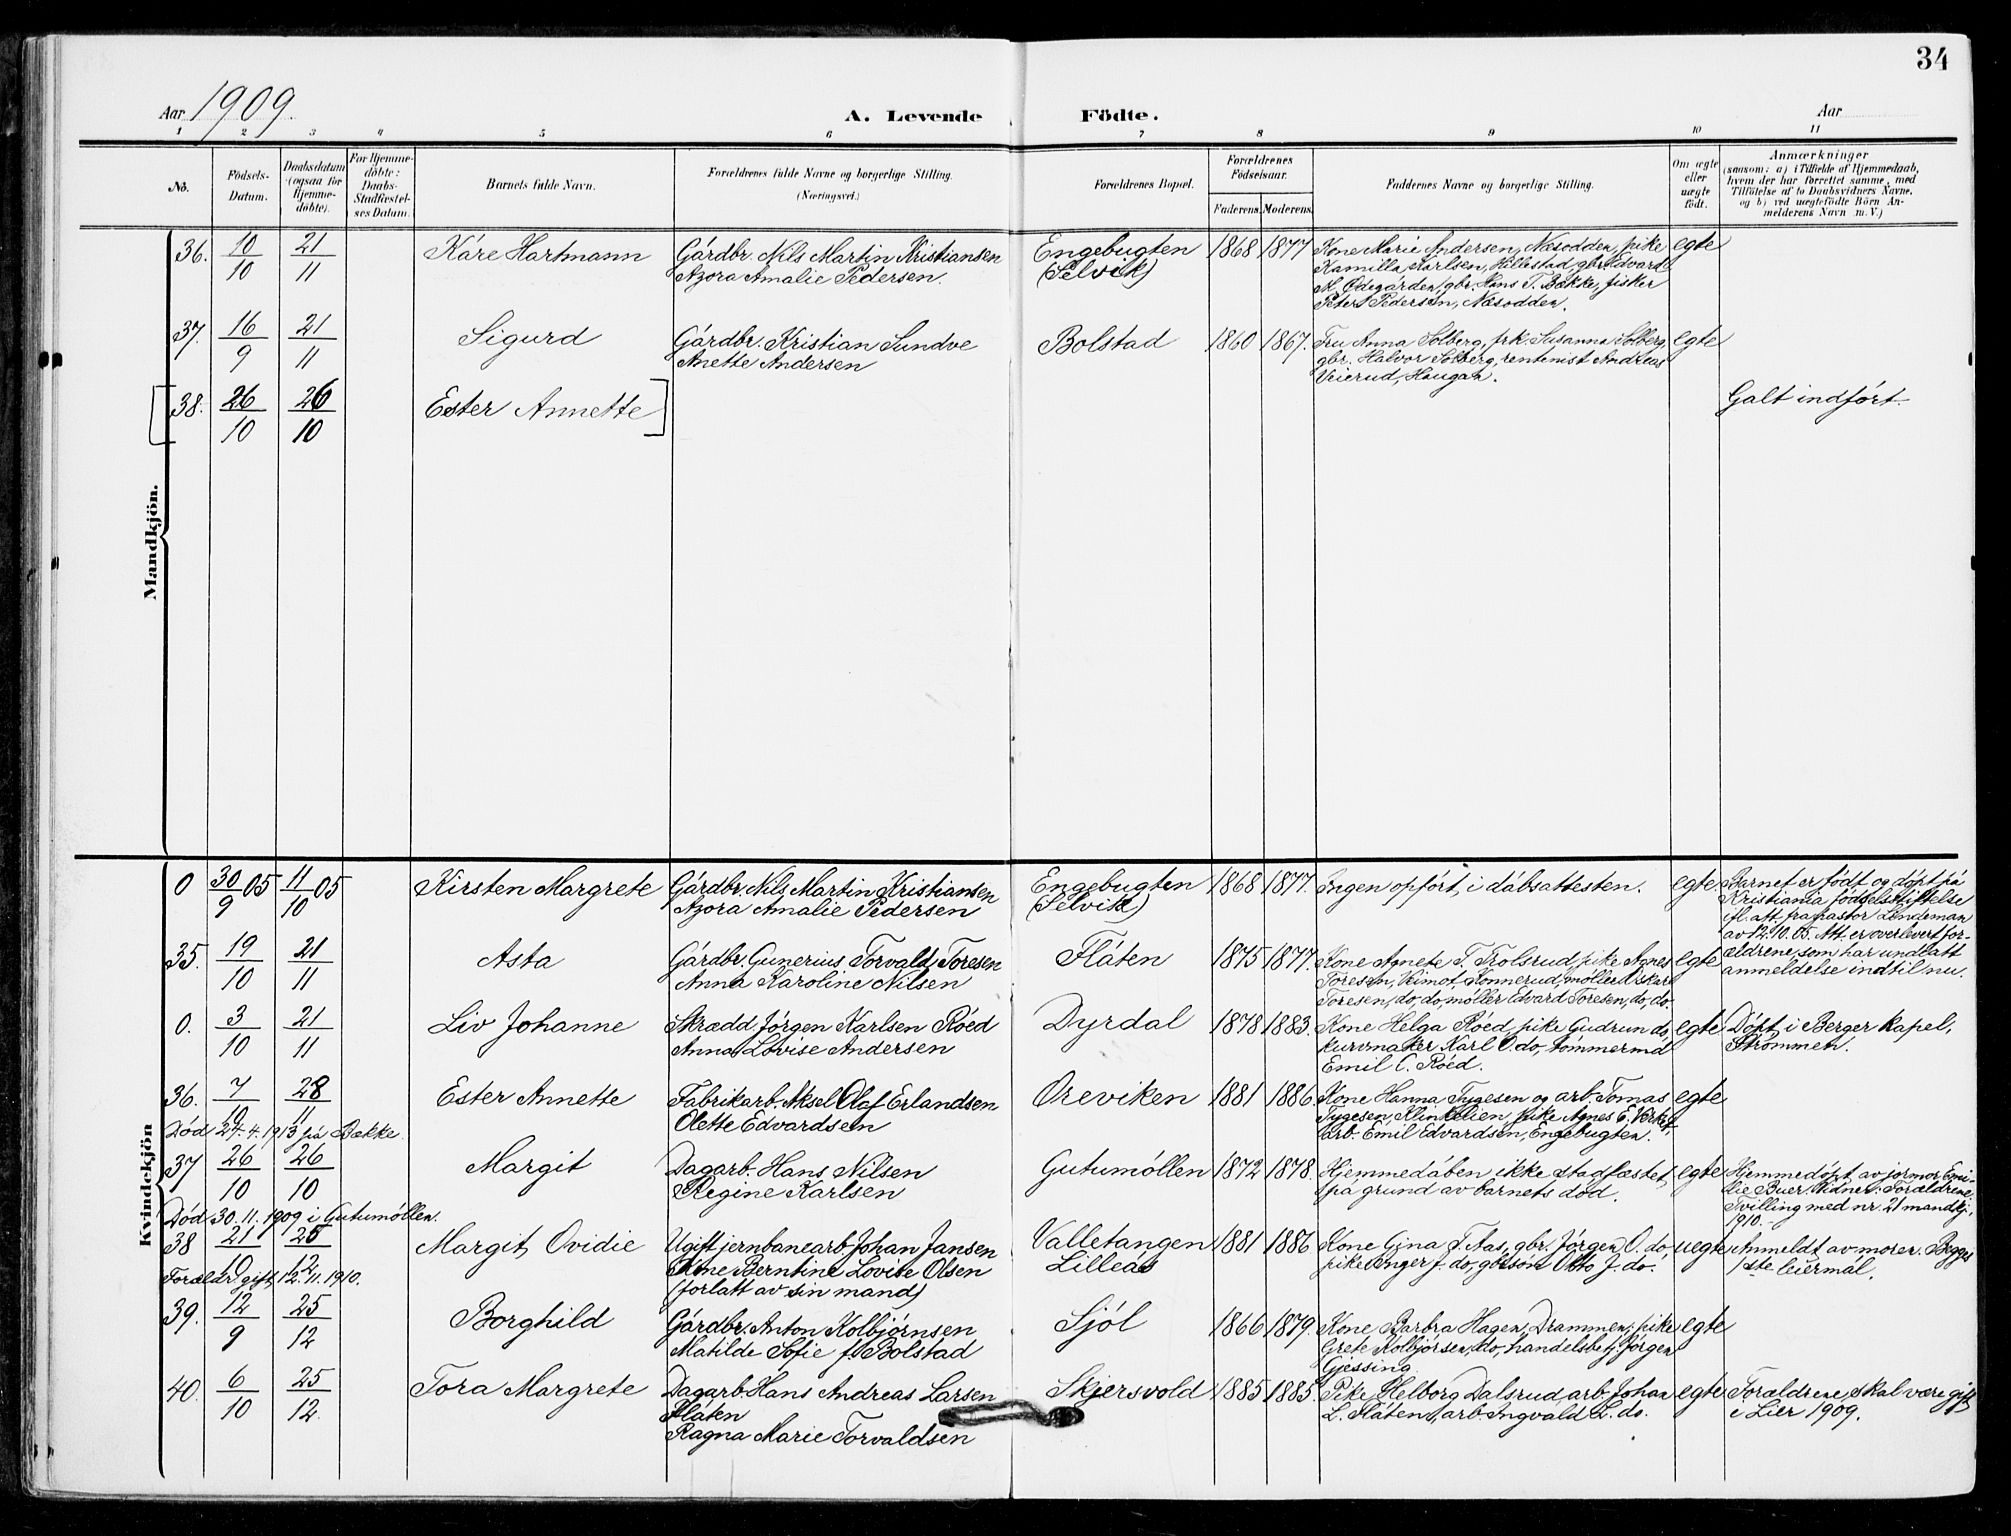 34
Aar 1909.
A. Levende Födte.
Aar
1 2 3 4 5 6 7 8 9 10 11
No.
Födsels-Datum.
Daabsdatum (ogsaa for Hjemme-döbte).
For Hjemme-döbte: Daabs-Stadfæstel-ses Datum.
Barnets fulde Navn.
Forældrenes fulde Navne og borgerlige Stilling. (Næringsvei.)
Forældrenes Bopæl.
Forældrenes Födselsaar.
Faderens. Moderens.
Faddernes Navne og borgerlige Stilling.
Om ægte eller uægte födt.
Anmærkninger
(saasom: a) i Tilfælde af Hjemmedaab,
hvem der har forrettet samme, med
Tilföielse af to Daabsvidners Navne,
og b) ved uægtefödte Börn An-
melderens Navn m. V.)
Mandkjön.
36. 10/10 21/11 Kåre Hartmann
Gårdbr. Nils Martin Kristiansen
Azora Amalie Pedersen.
Engebugten
(Selvik)
1868 1877
Kone Marie Andersen, Næsodden, pike
Kamilla Karlsen, Hillestad, gbr. Edvard
M. Ødegården, gbr. Hans T. Bække, fisker
Peter Pedersen, Næsodden.
egte
37. 16/9 21/11 Sigurd
Gårdbr. Kristian Sundve
Anette Andersen
Bolstad
1860 1867.
Fru Anna Solberg, frk. Susanna Solberg,
gbr. Halvor Solberg, rentenist Andreas
Veierud, Haugan.
egte
[38. 26/10 26/10 Ester Annette]
Galt indført.
Kvindekjön
0 30/9 05 11/10 05 Kirsten Margrete
Gårdbr. Nils Martin Kristiansen
Azora Amalie Pedersen
Engebugten
(Selvik)
1868 1877.
Ingen opført, i dåbsattesten.
egte
Barnet er født og døpt på
Kristiania fødselsstiftelse
ifl. att. fra pastor Lindeman
av 12.10.05. Att. er overlevert for-
ældrene, som har undlatt
anmeldelse indtil nu.
35. 19/10 21/11 Asta
Gårdbr. Gunerius Torvald Toresen
Anna Karoline Nilsen
Flåten
1875 1877.
Kone Agnete T. Trolsrud, pike Agnes
Toresen, Veimot, Konnerud, møller Oskar
Toresen, do, do, møller Edvard Toresen, do, do
egte
0. 3/10 21/11 Liv Johanne
Skrædd. Jørgen Karlsen Røed
Anna Lovise Andersen
Dyrdal
1878 1883.
Kone Helga Røed, pike Gudrun do,
kurvmaker Karl O. do, tømmermd
Emil C. Røed.
egte
Døpt i Berger kapel,
Strømmen.
36. 7/10 28/11 Ester Annette
Fabrikarb. Aksel Olaf Erlandsen
Olette Edvardsen
Oreviken
1881 1886.
Kone Hanna Tygesen og arb. Tomas
Tygesen, Klinkelien, pike Agnes E. Verket,
arb. Emil Edvardsen, Engebugten.
egte
Død 24.4.1913 på Bække
37 26/10 26/10 Margit
Dagarb. Hans Nilsen
Regine Karlsen
Gutumøllen
1872 1878.
Hjemmedåben ikke stadfæstet,
på grund av barnets død.
egte
Hjemmedøpt av jormor Emi-
lie Buer. Vidner: Forældrene
Tvilling med nr. 21 mandkj.
1910.
Død 30.11.1909 i Gutumøllen.
38 21/10 25/12 Margit Ovidie
Ugift jernbanearb. Johan Jansen
Kone Berntine Lovise Olsen
(forlatt av sin mand)
Valletangen
Lilleås
1881 1886
Kone Gina F. Aas, gbr. Jørgen O. do,
pike Inger J. do, gbr.søn Otto J. do.
uegte
Anmeldt av moren. Begges
1ste leiermål.
Forældr. gift 12.11.1910.
39. 12/9 25/12 Borghild
Gårdbr. Anton Kolbjørnsen
Matilde Sofie f. Bolstad
Sjøl
1866 1879.
Kone Barbra Hagen, Drammen, pike
Grete Kolbjørsen, do, handelsbetj. Jørgen
Gjessing.
egte
40. 6/10 25/12. Tora Margrete
Dagarb. Hans Andreas Larsen
Flåten
Ragna Marie Torvaldsen
Skjersvold
1885 1885.
Pike Helborg Dalsrud, arb. Johan
L. Flåten, arb. Ingvald L. do.
egte
Forældrene skal være gift
i Lier 1909.